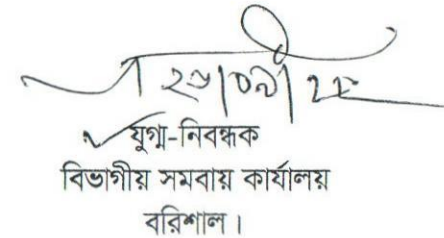 যুগ্ম-নিবন্ধক
বিভাগীয় সমবায় কার্যালয়
বরিশাল।